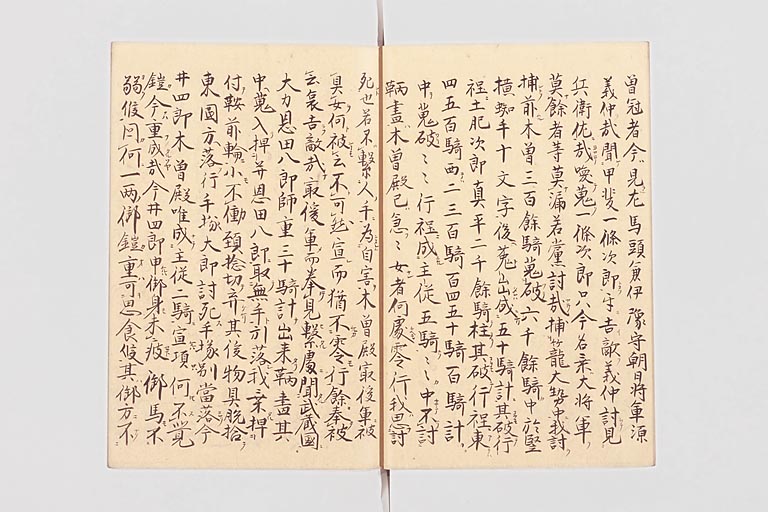 曽冠者今見左馬頭兼伊豫守朝日将軍源
義仲哉聞甲斐一條次郎守吉敵義仲討見
兵衛佐哉喚蒐一條次郎只今名乗大将軍
莫餘者等莫漏若黨討哉捕龍大勢中我討
捕前木曽三百餘騎蒐破六千餘騎中於竪
横蜘手十文字後蒐出成五十騎計其破行
程土肥次郎真平二千餘騎柱其破行程東
四五百騎西二三百騎百四五十騎百騎計
中蒐破〻〻行程成主従五騎〻〻中不討
鞆畫木曽殿已急〻女者何處零行我思討
死也若不繋人手為自害木曽殿最後軍被
具女何被云不可然宣而猶不零行餘奉被
云哀吉敵武最後軍而奉見繋處聞武蔵國
大力恩田八郎師重三十騎計出来鞆畫其
中蒐入捍并恩田八郎取無手引落我乗捍
付鞍前輪小不働頚捻切弃其後物具脱捨
東國方落行手塚大郎討死手塚別當落今
井四郎木曽殿唯成主従二騎宣項何不覚
鎧今重成哉今井四郎申御身未疲御馬不
弱候回何一両御鎧重可思食候其御方不